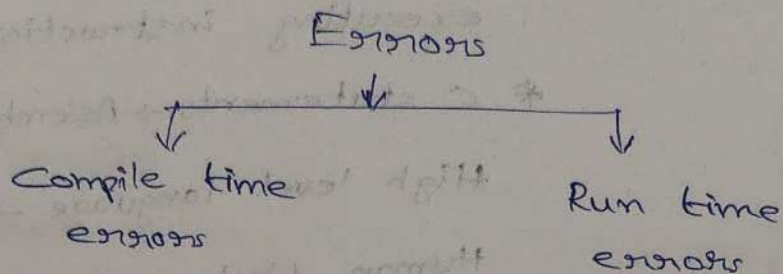 Errors
Compile time
errors
Run time
errors